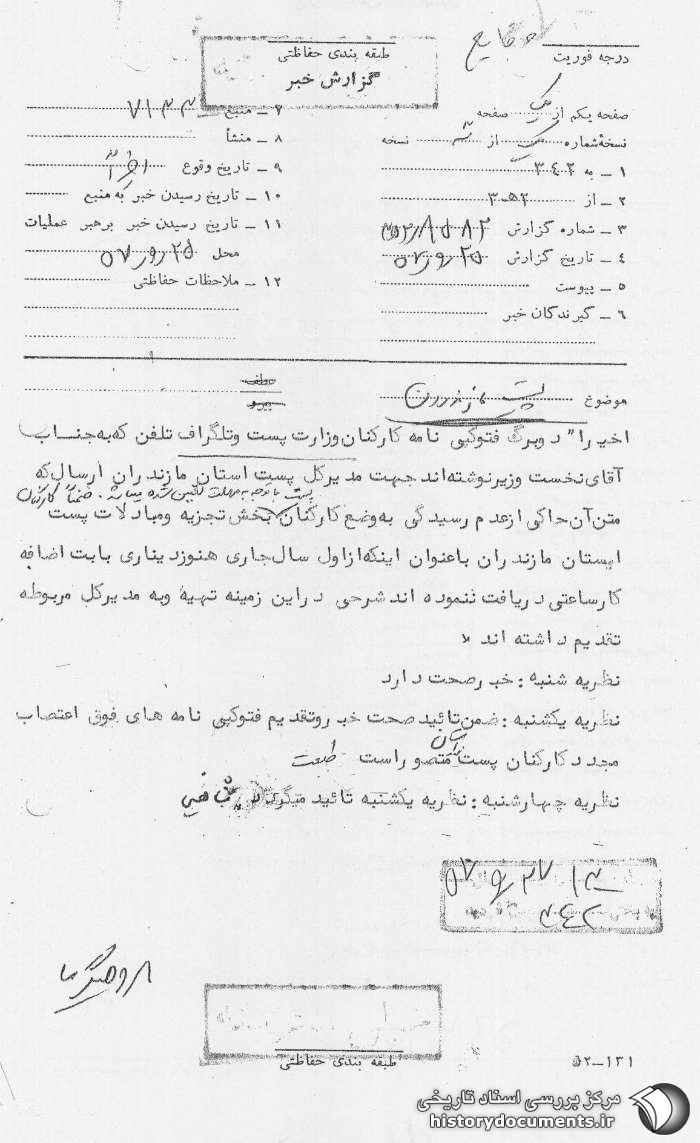 درجه فوریت
طبقه بندی حفاظتی
گزارش خبر
صفحه یکم از یک صفحه
نسخهٔ شماره یک از نسخه
۱ ــ به ۳۴۲
۲ ــ از ۳۰۵۲
۳ ــ شماره گزارش
۴ ــ تاریخ گزارش ۲۵
۵ ــ پیوست
۶ ــ گیرندگان خبر
۷ ــ منبع ۷۱۳۳
۸ ــ منشأ
۹ ــ تاریخ وقوع
۱۰ ــ تاریخ رسیدن خبر به منبع
۱۱ ــ تاریخ رسیدن خبر برهبر عملیات
محل ۲۵
۱۲ ــ ملاحظات حفاظتی
موضوع پست مازندران
اخیرا" دو برگ فتوکپی نامه کارکنان وزارت پست و تلگراف تلفن که به جناب
آقای نخست وزیر نوشته اند جهت مدیرکل پست استان مازندران ارسال که
متن آن حاکی از عدم رسیدگی به وضع کارکنان پست با توجه به مهلت تعیین شده میباشد. ضمناً کارکنان
بخش تجزیه و مبادلات پست
استان مازندران باعنوان اینکه از اول سال جاری هنوز دیناری بابت اضافه
کار ساعتی دریافت ننموده اند شرحی در این زمینه تهیه و به مدیرکل مربوطه
تقدیم داشته اند
نظریه شنبه : خبر صحت دارد
نظریه یکشنبه : ضمن تائید صحت خبر و تقدیم فتوکپی نامه های فوق اعتصاب
مجدد کارکنان پست استان متصور است
نظریه چهارشنبه : نظریه یکشنبه تائید میگردد
طبقه بندی حفاظتی
۵۲ــ۱۳۱
مرکز بررسی اسناد تاریخی
historydocuments.ir